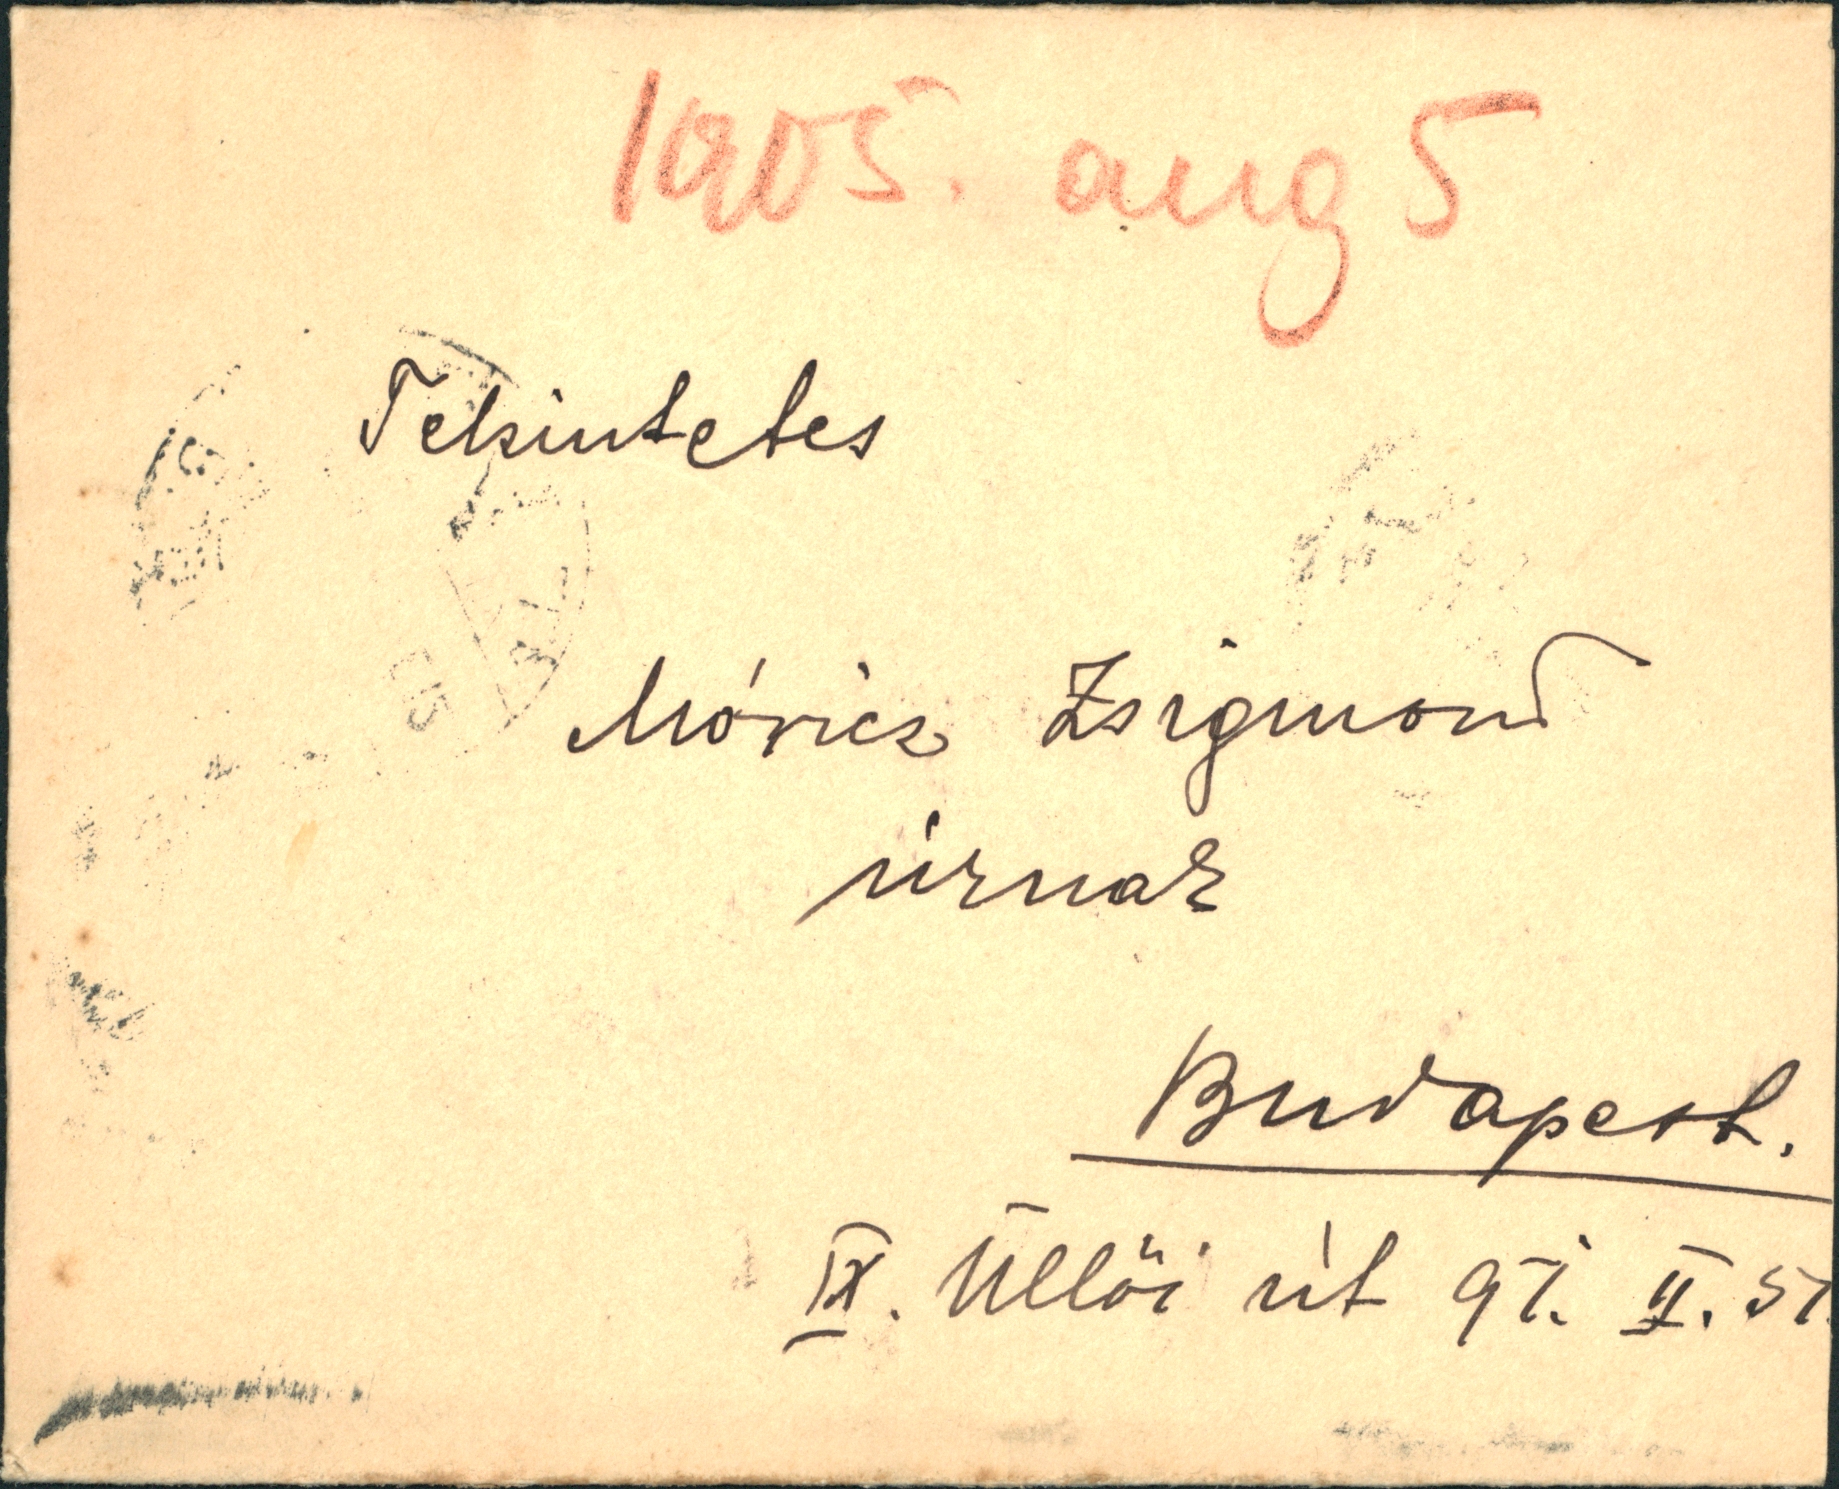 1905. aug 5
Tekintetes
Móricz Zsigmond
úrnak
Budapest.
IX. Üllői út 91. II. 51.